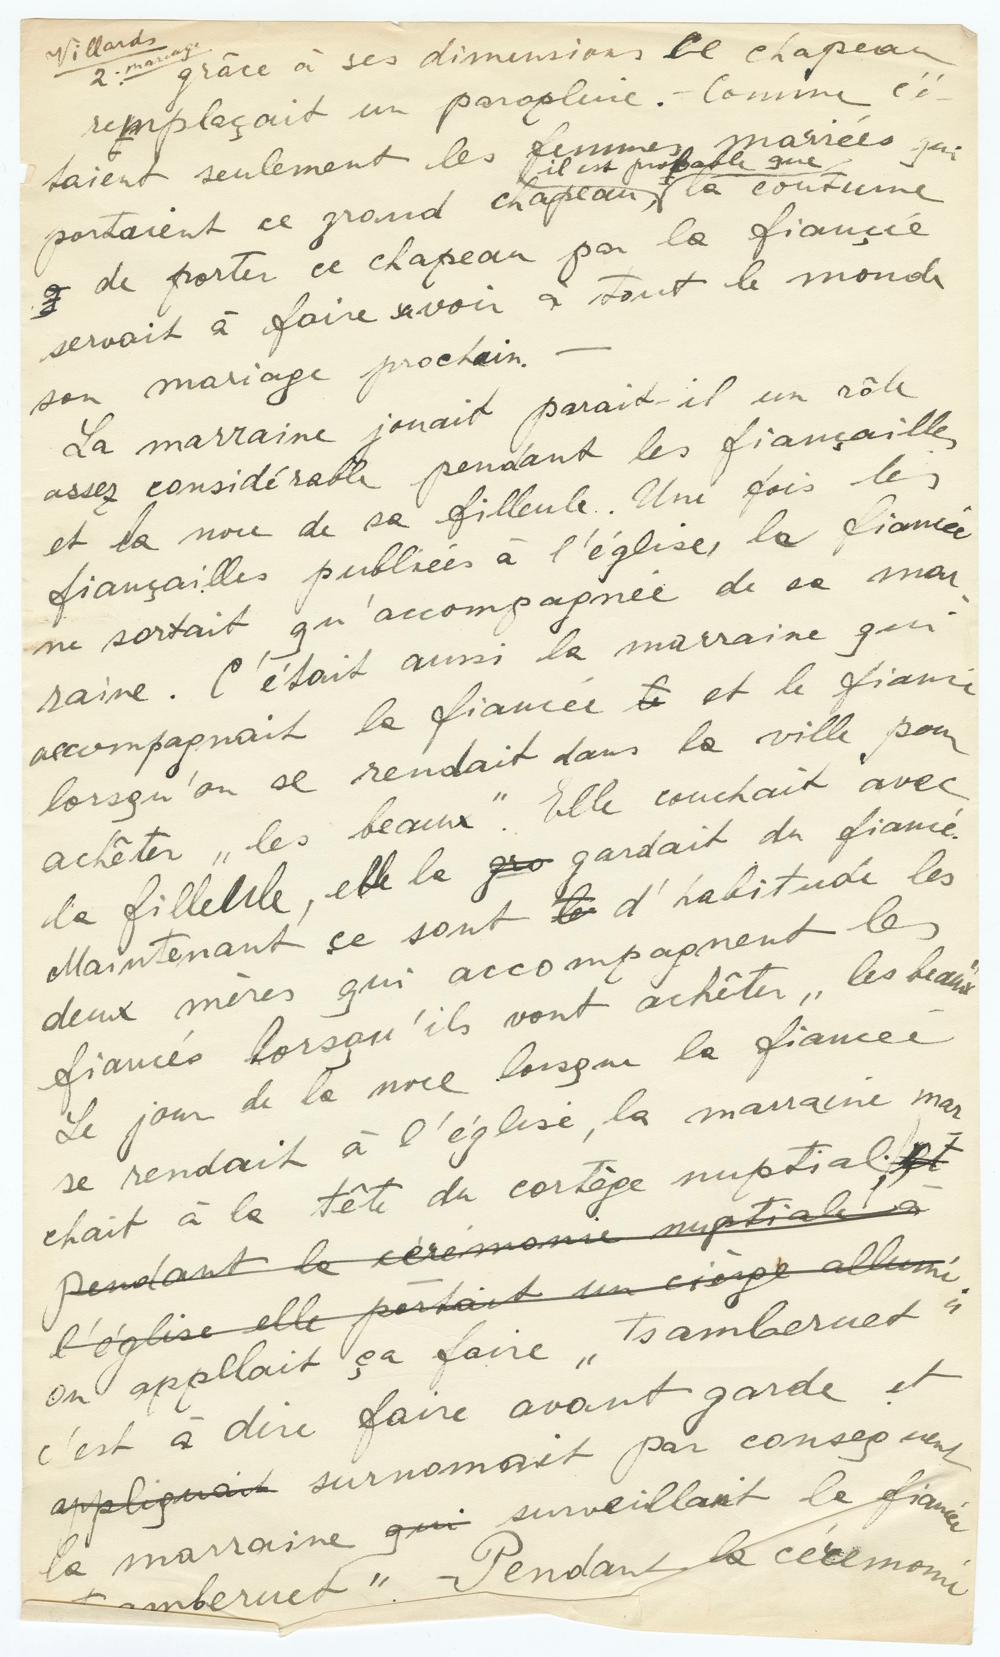 Villards
2. mariage
grâce à ses dimensions ce chapeau
remplaçait un parapluie. – Comme c'é-
taient seulement les femmes mariées qui
il est probable que
portaient ce grand chapeau, la coutume
de porter ce chapeau par la fiancée
servait à faire savoir à tout le monde
son mariage prochain. —
La marraine jouait parait-il un rôle
assez considérable pendant les fiançailles
et la noce de sa filleule. Une fois les
fiançailles publiées à l'église, la fiancée
ne sortait qu'accompagnée de sa mar-
raine. C'était aussi la marraine qui
accompagnait la fiancée te et le fiancé
lorsqu'on se rendait dans la ville pour
achêter „les beaux". Elle couchait avec
la filleule, elle la gra gardait du fiancé.
Maintenant ce sont le d'habitude les
deux mères qui accompagnent les
fiancés lorsqu'ils vont achêter „les beaux"
Le jour de la noce lorsque la fiancée
se rendait à l'église, la marraine mar-
chait à la tête du cortège nuptial. et
pendant la cérémonie nuptiale à
l'église elle portait un cièrge allumé
on appllait ça faire „tsamberuet"
c'est à dire faire avant garde et
appliquait surnomait par consequent
la marraine qui surveillant la fiancée
tsamberuet". – Pendant la céremoni